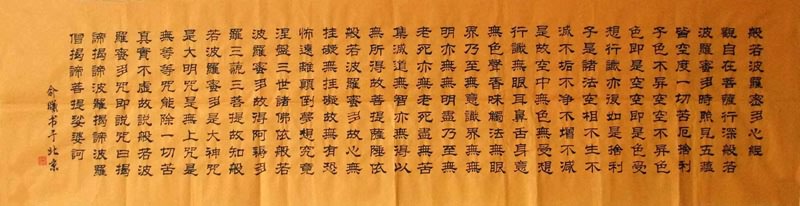 般若波羅蜜多心經
觀自在菩薩行深般若
波羅蜜多時照見五蘊
皆空度一切苦厄捨利
子色不异空空不异色
色即是空空即是色受
想行識亦復如是捨利
子是諸法空相不生不
滅不垢不净不增不減
是故空中無色無受想
行識無眼耳鼻舌身意
無色聲香味觸法無眼
界乃至無意識界無無
明亦無無明盡乃至無
老死亦無老死盡無苦
集滅道無智亦無得以
無所得故菩提薩埵依
般若波羅蜜多故心無
挂礙無挂礙故無有恐
怖遠離顛倒夢想究竟
涅盤三世諸佛依般若
波羅蜜多故得阿耨多
羅三藐三菩提故知般
若波羅蜜多是大神咒
是大明咒是無上咒是
無等等咒能除一切苦
真實不虛故說般若波
羅蜜多咒即說咒曰揭
諦揭諦波羅揭諦波羅
僧揭諦菩提娑婆訶
俞曦书于北京